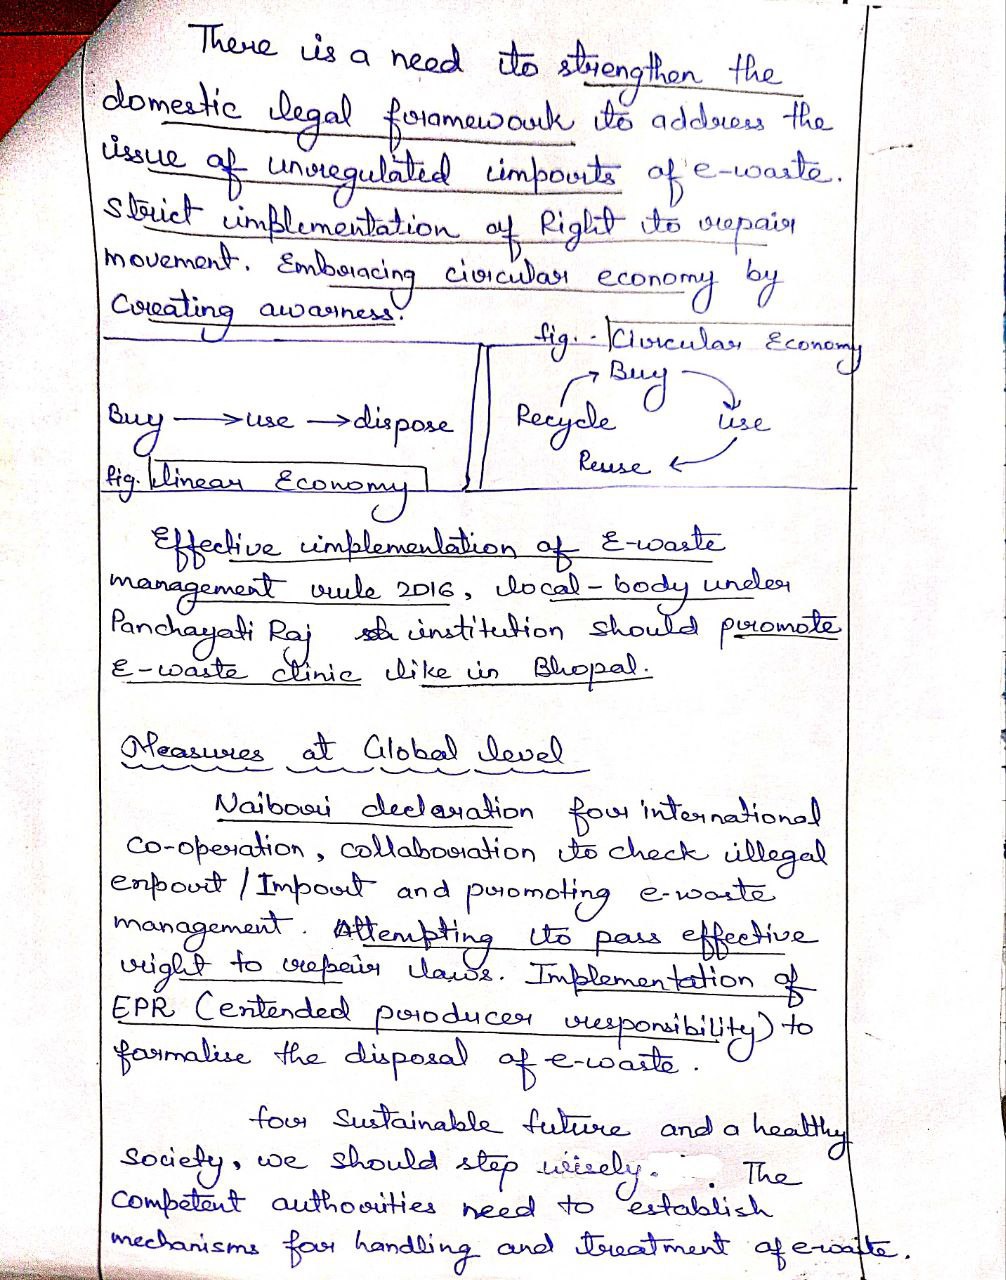 There is a need to strengthen the
domestic legal framework to address the
issue of unregulated imports of e-waste.
Strict implementation of Right to repair
movement. Embracing circular economy by
Creating awarness.
fig. - Circular Economy
Buy
Buy → use → dispose
Recycle
use
Reuse
fig. linear Economy
Effective implementation of E-waste
management rule 2016, local-body under
Panchayati Raj institution should promote
E-waste clinic like in Bhopal.
Measures at Global level
Naibori declaration for international
co-operation, collaboration to check illegal
export / Import and promoting e-waste
management. Attempting to pass effective
right to repair laws. Implementation of
EPR (extended producer responsibility) to
formalise the disposal of e-waste.
for Sustainable future and a healthy
society, we should step wisely. The
competent authorities need to establish
mechanisms for handling and treatment of e-waste.